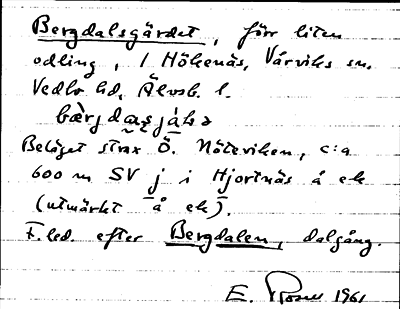 Bergdalsgärdet, förr liten
odling, 1 Hökenäs, Vårviks sn.
Vedbo hd, Älvsb. l.
Beläget strax Ö. Nöteviken, c:a
600 m SV j i Hjortnäs å ek
(utmärkt å ek).
F.led. efter Bergdalen, dalgång.
E. 1961